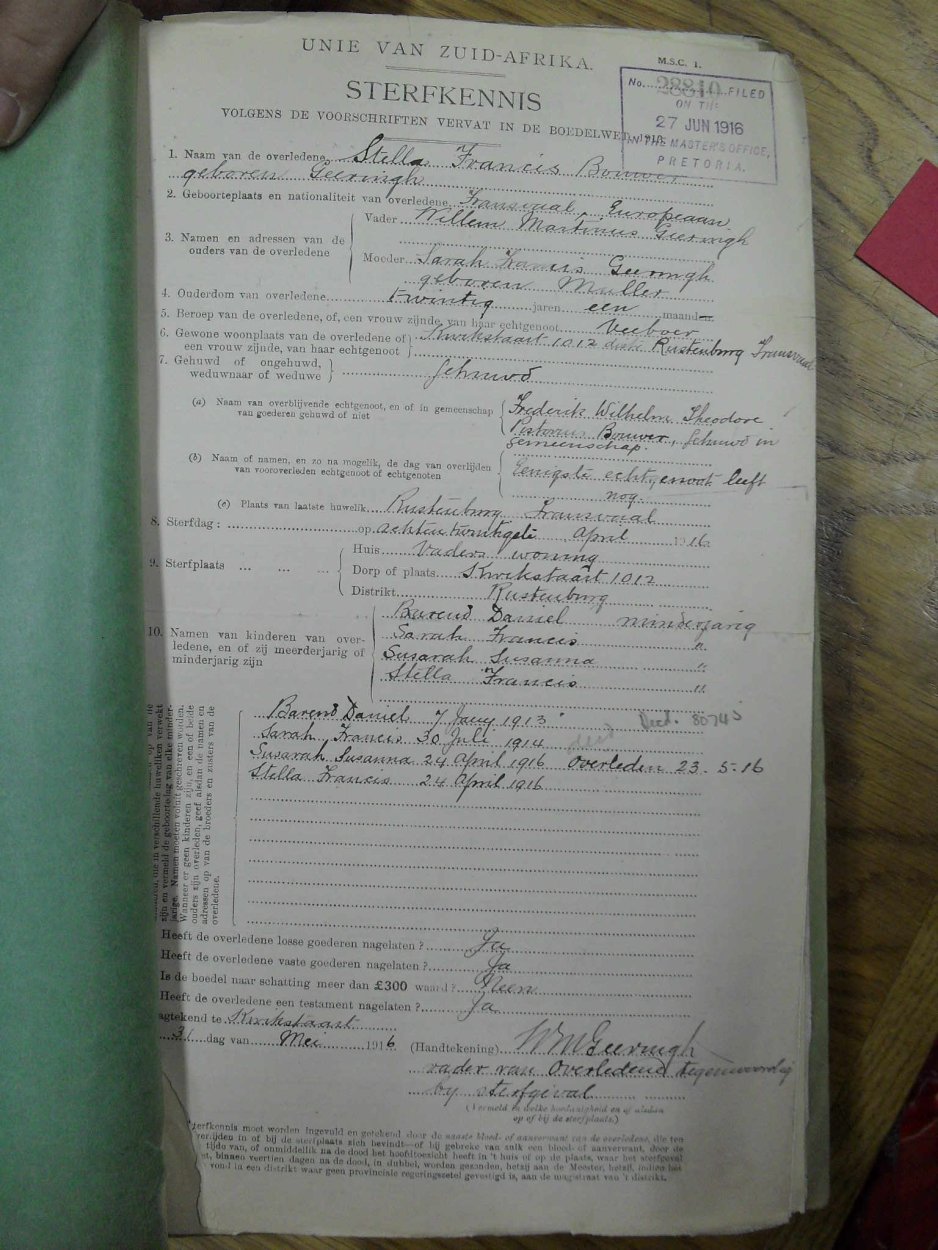 UNIE VAN ZUID-AFRIKA.
M.S.C. 1.
STERFKENNIS
VOLGENS DE VOORSCHRIFTEN VERVAT IN DE BOEDELWET, 1913.
No. 28810 FILED
ON THE
27 JUN 1916
IN THE MASTER'S OFFICE,
PRETORIA.
1. Naam van de overledene Stella Francis Bouwer
geboren Geeringh
2. Geboorteplaats en nationaliteit van overledene Transvaal, Europeaan
3. Namen en adressen van de ouders van de overledene
Vader Willem Martinus Geeringh
Moeder Sarah Francis Geeringh
geboren Muller
4. Ouderdom van overledene twintig jaren een maand
5. Beroep van de overledene, of, een vrouw zijnde, van haar echtgenoot Veeboer
6. Gewone woonplaats van de overledene of een vrouw zijnde, van haar echtgenoot Kwikstaart 1012 distr. Rustenburg Transvaal
7. Gehuwd of ongehuwd, weduwnaar of weduwe Gehuwd
(a) Naam van overblijvende echtgenoot, en of in gemeenschap van goederen gehuwd of niet
Frederik Wilhelm Theodore
Pistorius Bouwer, Gehuwd in
gemeenschap.
(b) Naam of namen, en zo na mogelik, de dag van overlijden van vooroverleden echtgenoot of echtgenoten
Eenigste echtgenoot leeft
nog.
(c) Plaats van laatste huwelik Rustenburg Transvaal
8. Sterfdag : op achtentwintigste April 1916
9. Sterfplaats ... ... ...
Huis Vaders woning
Dorp of plaats Kwikstaart 1012
Distrikt Rustenburg
10. Namen van kinderen van overledene, en of zij meerderjarig of minderjarig zijn
Barend Daniel minderjarig
Sarah Francis "
Susarah Susanna "
Stella Francis "
Barend Daniel 7 Jany 1913
Decd. 80745
Sarah Francis 30 Juli 1914
Susarah Susanna 24 April 1916 Overleden 23.5.16
Stella Francis 24 April 1916
zijn en vermeld de geboortedag van elke minderjarige. Namen moeten voluit geschreven worden.
Wanneer er geen kinderen zijn, en een of beide
ouders zijn overleden, geef alsdan de namen en
adressen op van de broeders en zusters van de
overledene.
Heeft de overledene losse goederen nagelaten ? Ja
Heeft de overledene vaste goederen nagelaten ? Ja
Is de boedel naar schatting meer dan £300 waard ? Neen
Heeft de overledene een testament nagelaten ? Ja
agtekend te Kwikstaart
31 dag van Mei 1916
(Handtekening) WMGeeringh
vader van Overledene tegenwoordig
by sterfgeval
(Vermeld in welke hoedanigheid en of aldan
op of bij de sterfplaats.)
terfkennis moet worden ingevuld en getekend door de naaste bloed- of aanverwant van de overledene, die ten
verlijden in of bij de sterfplaats zich bevindt—of bij gebreke van zulk een bloed- of aanverwant, door de
tijde van, of onmiddellik na de dood het hoofdtoezicht heeft in 't huis of op de plaats, waar het sterfgeval
binnen veertien dagen na de dood, in dubbel, worden gezonden, hetzij aan de Meester, hetzij, indien het
in een distrikt waar geen provinciale regeringszetel gevestigd is, aan de magistraat van 't distrikt.